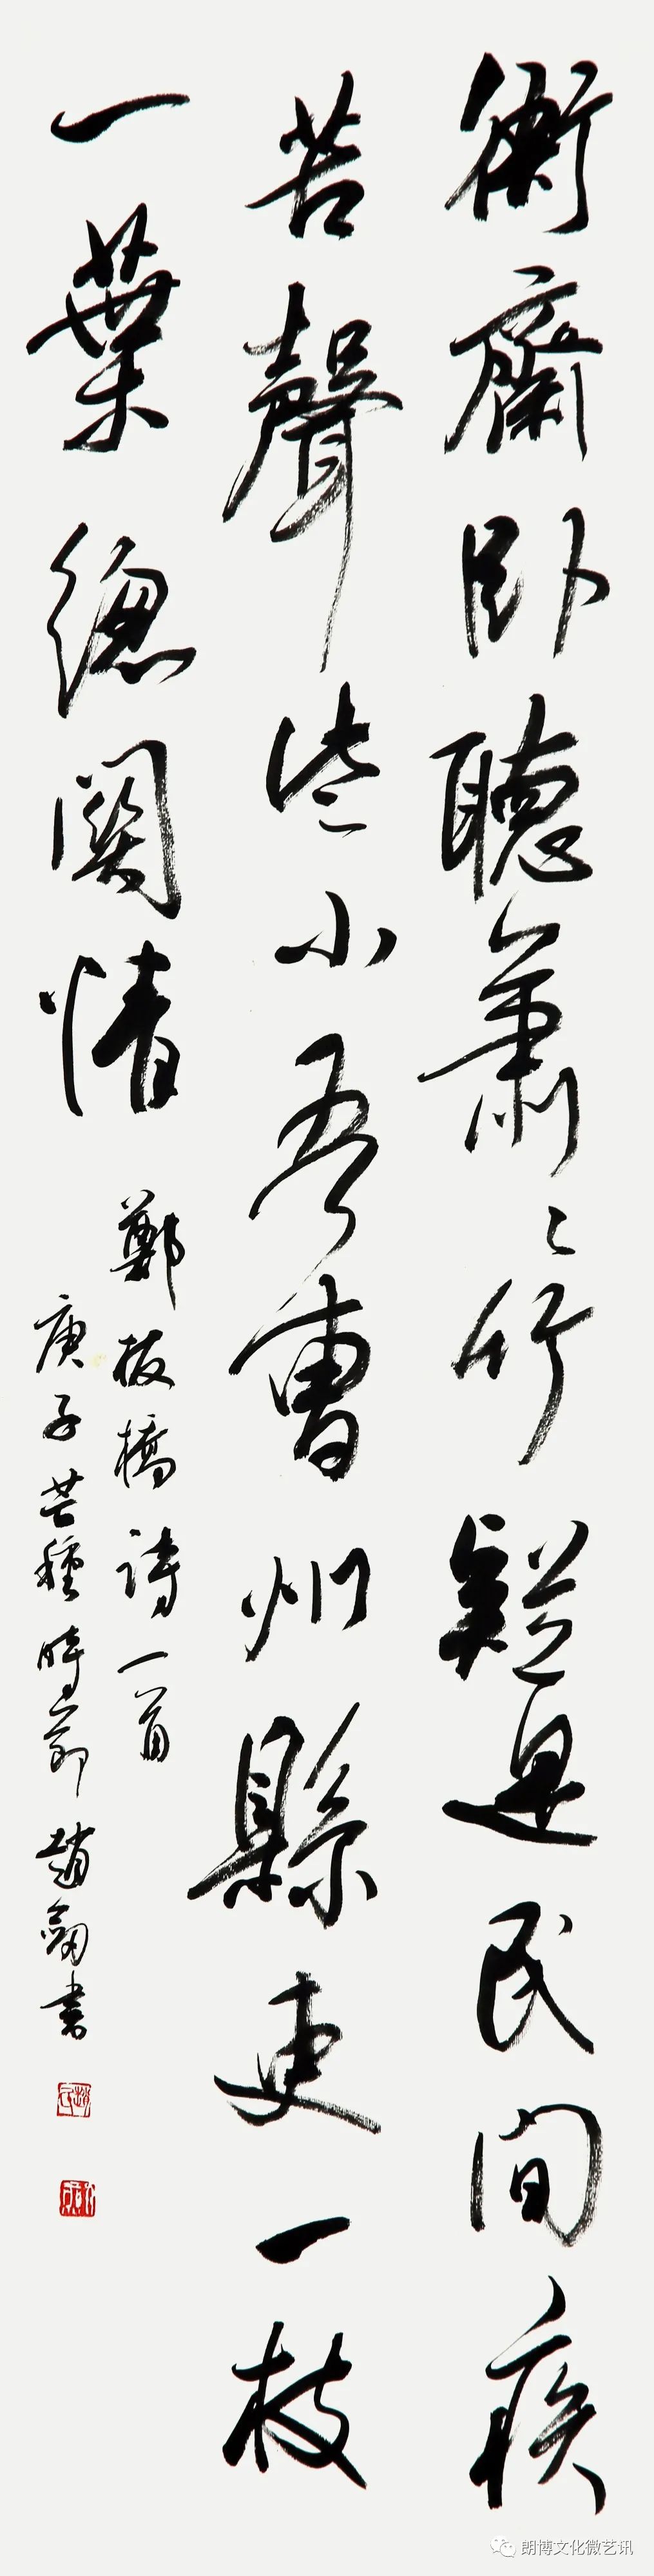 衙齋卧聽蕭〻竹疑是民间疾
苦聲些小吾曹州縣吏一枝
一葉總關情
鄭板橋詩一首
庚子芒種時節趙劍書
朗博文化微艺讯